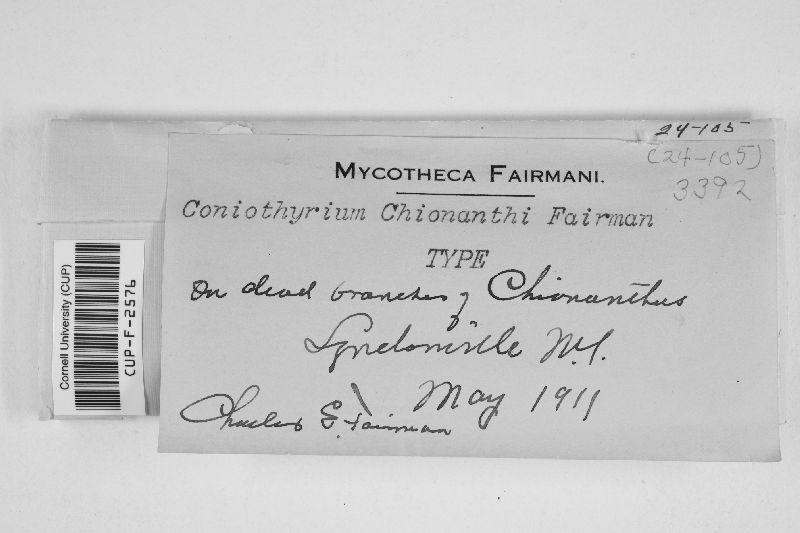 24-105
(24-105)
MYCOTHECA FAIRMANI.
3392
Coniothyrium Chionanthi Fairman
TYPE
On dead branches of Chionanthus
Lyndonville N.Y.
May 1911
Charles E. Fairman
Cornell University (CUP)
CUP-F-2576